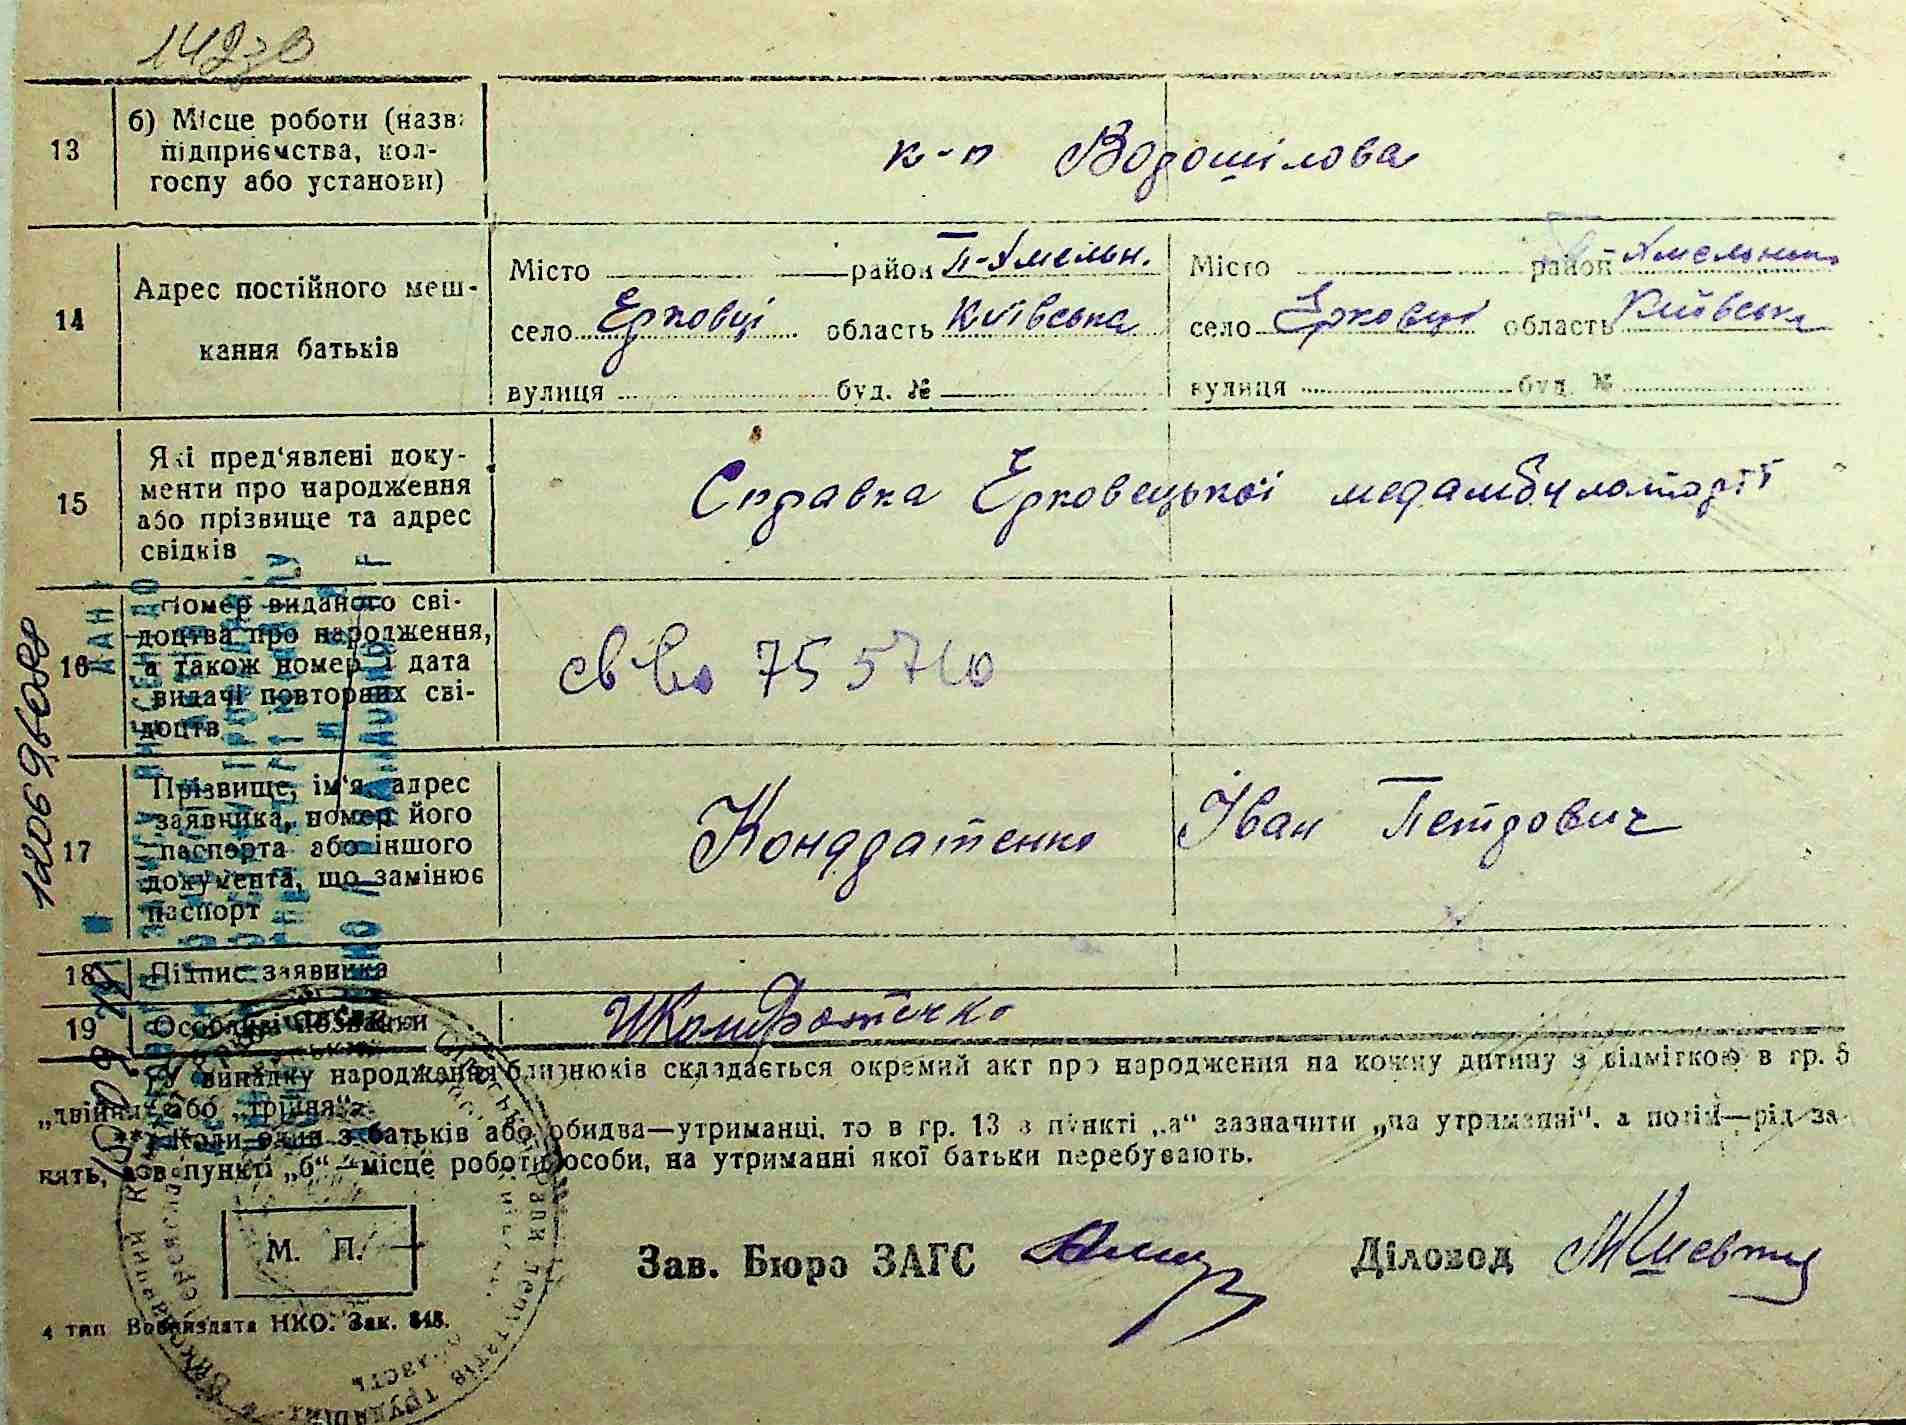 13 б) Місце роботи (назва
підприємства, кол-
госпу або установи)
к-п Ворошілова
14 Адрес постійного меш-
кання батьків
Місто район П-Хмельн.
село Єрковці область Київська
вулиця буд. №
Місто район П-Хмельниц
село Єрковці область Київська
вулиця буд. №
15 Які пред'явлені доку-
менти про народження
або прізвище та адрес
свідків
Справка Єрковецької медамбулаторії
16 Номер виданого сві-
доцтва про народження,
а також номер і дата
видачі повторних сві-
доцтв
св-во 755710
17 Прізвище, ім'я, адрес
заявника, номер його
паспорта або іншого
документа, що замінює
паспорт
Кондратенко Іван Петрович
18 Підпис заявника
19 Особливі позначки
ИКондратенко
*) У випадку народження близнюків складається окремий акт про народження на кожну дитину з відміткою в гр. 5
„двійня" або „трійня".
**) Коли один з батьків або обидва—утриманці, то в гр. 13 в пункті „а" зазначити „на утриманні", а потім—рід за-
нять, а в пункті „б"—місце роботи особи, на утриманні якої батьки перебувають.
М. П.
Зав. Бюро ЗАГС
Діловод
4 тип Воениздата НКО. Зак. 848.